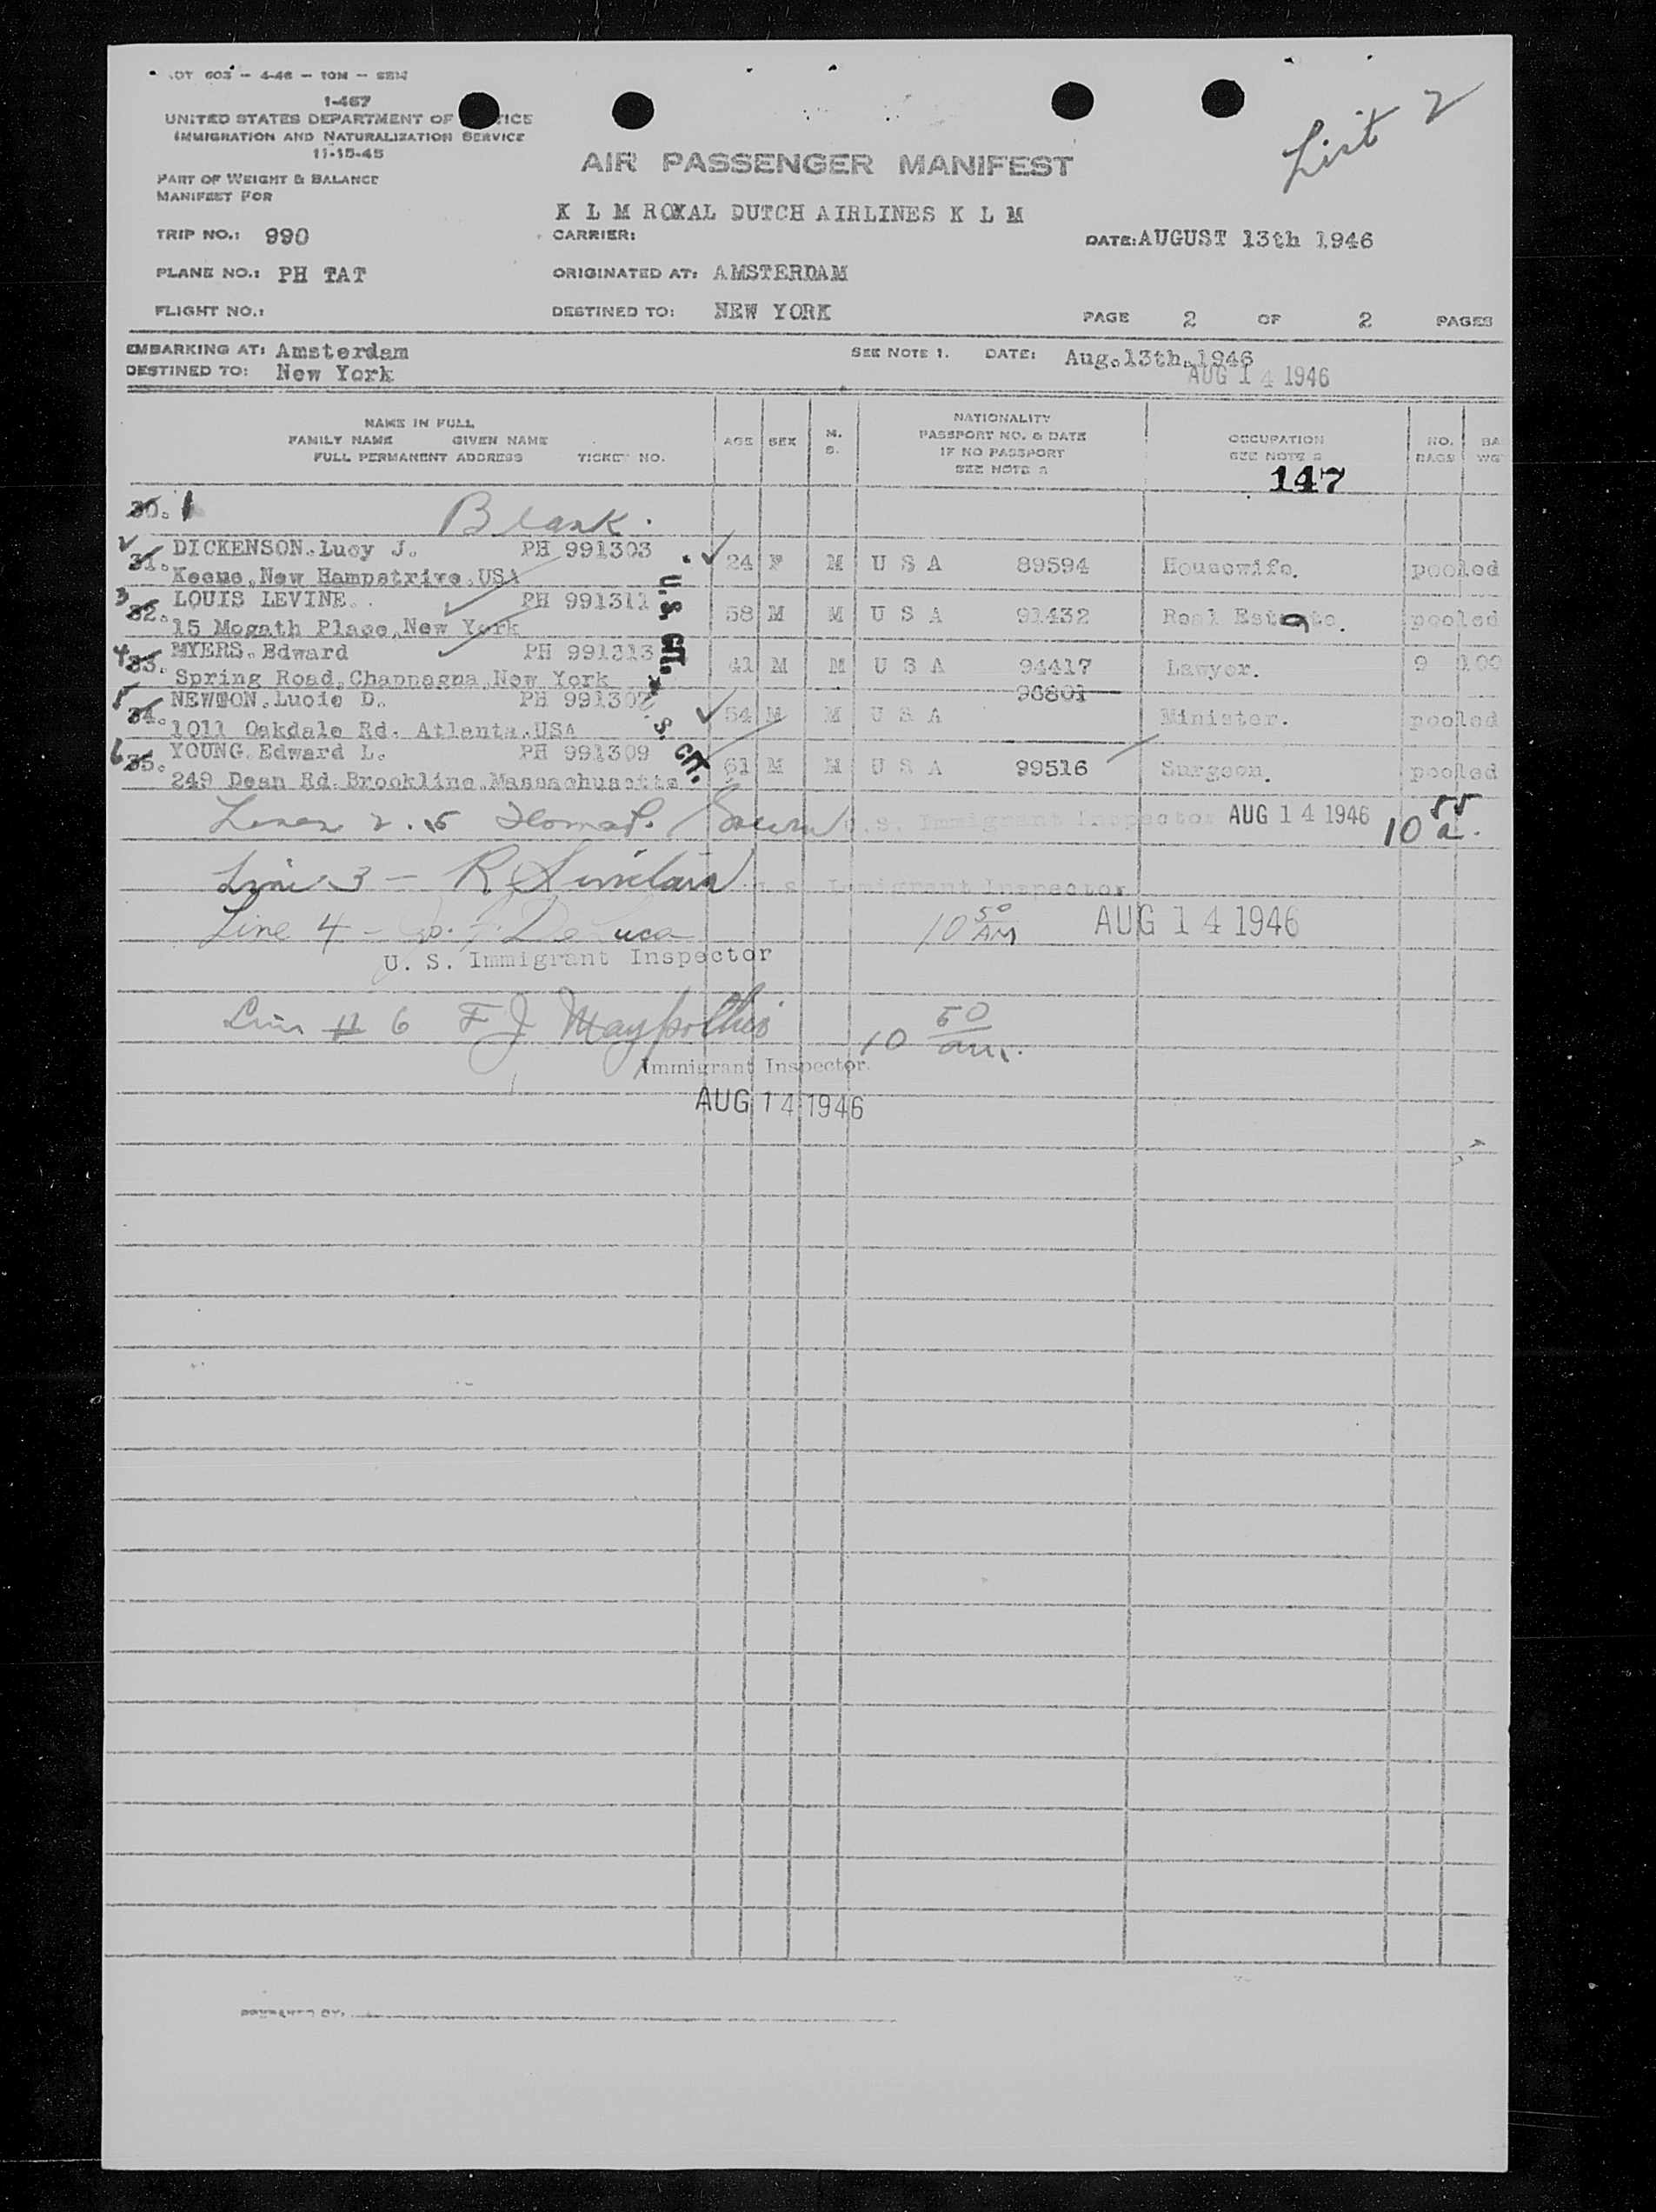 603 - 4-46 - 10M - SBM
List 2
1-467
UNITED STATES DEPARTMENT OF TICE
IMMIGRATION AND NATURALIZATION SERVICE
11-15-45
AIR PASSENGER MANIFEST
PART OF WEIGHT & BALANCE
MANIFEST FOR
K L M ROYAL DUTCH AIRLINES K L M
TRIP NO.: 990 CARRIER: DATE: AUGUST 13th 1946
PLANE NO.: PH TAT ORIGINATED AT: AMSTERDAM
FLIGHT NO.: DESTINED TO: NEW YORK PAGE 2 OF 2 PAGES
EMBARKING AT: Amsterdam SEE NOTE 1. DATE: Aug.13th.1946
DESTINED TO: New York AUG 14 1946
NAME IN FULL
FAMILY NAME GIVEN NAME
FULL PERMANENT ADDRESS TICKET NO.
AGE SEX M. S.
NATIONALITY
PASSPORT NO. & DATE
IF NO PASSPORT
SEE NOTE
OCCUPATION
SEE NOTE
NO. BAGS BA WG
147
30. 1 Blank.
31. DICKENSON.Lucy J. PH 991303 24 F M U S A 89594 Housewife. pooled
Keene.New Hampstrire.USA
3 32. LOUIS LEVINE. PH 991311 58 M M U S A 91432 Real Estate. pooled
15 Mogath Place,New York
4 33. MYERS.Edward PH 991313 41 M M U S A 94417 Lawyer. 9 100
Spring Road,Chappaqua,New York
5 34. NEWTON.Lucie D. PH 991302 54 M M U S A 96801 Minister. pooled
1011 Oakdale Rd. Atlanta.USA
6 35. YOUNG.Edward L. PH 991309 61 M M U S A 99516 Surgeon. pooled
249 Dean Rd.Brookline.Massachusetts
U.S. CIT.
S. CIT.
Lines 2. 5 U.S. Immigrant Inspector AUG 14 1946 10 55 a.
Line 3 - R Sinclair U.S. Immigrant Inspector
Line 4 - De Luca 10 50 AM AUG 14 1946
U. S. Immigrant Inspector
Line # 6 F J 10 50 am.
Immigrant Inspector.
AUG 14 1946
PREPARED BY: